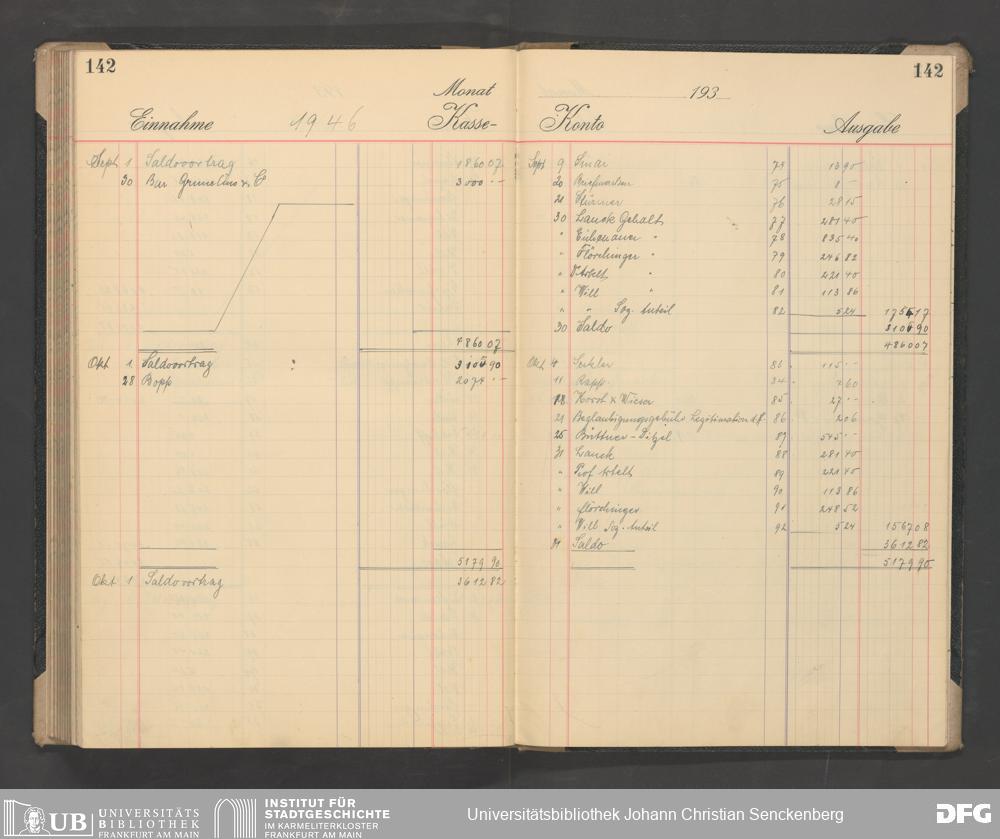 142
Monat
Einnahme 1946 Kasse-
Sept 1 Saldovortrag 1860 07
30 Bar Grunelius & Co 3000 --
4860 07
Okt 1. Saldovortrag 3104 90
28 Bopp 2074 --
5179 90
Okt 1 Saldovortrag 3612 82
142
193
Konto Ausgabe
Sept 9 74 13 95
20 Briefmarken 75 8 -
21 Stürmer 76 28 15
30 Lauck Gehalt 77 281 40
" " 78 835 40
" Flörchinger " 79 246 82
" " 80 221 40
" Will 81 113 86
" " Soz. Anteil 82 5 24 1755 17
30 Saldo 3104 90
4860 07
Okt. 4 115 --
11 Rapp. 34 7 60
18 Horst & Wieser 85 27 --
21 Beglaubigungsgebühr Legitimation 86 2 06
25 Büttner - 87 545 --
31 Lauck 88 281 40
" Prof 89 221 40
" Will 90 113 86
" Flörchinger 91 248 52
" Will Soz. Anteil 92 5 24 1567 08
31 Saldo 3612 82
5179 90
UB UNIVERSITÄTS
BIBLIOTHEK
FRANKFURT AM MAIN
INSTITUT FÜR
STADTGESCHICHTE
IM KARMELITERKLOSTER
FRANKFURT AM MAIN
Universitätsbibliothek Johann Christian Senckenberg
DFG